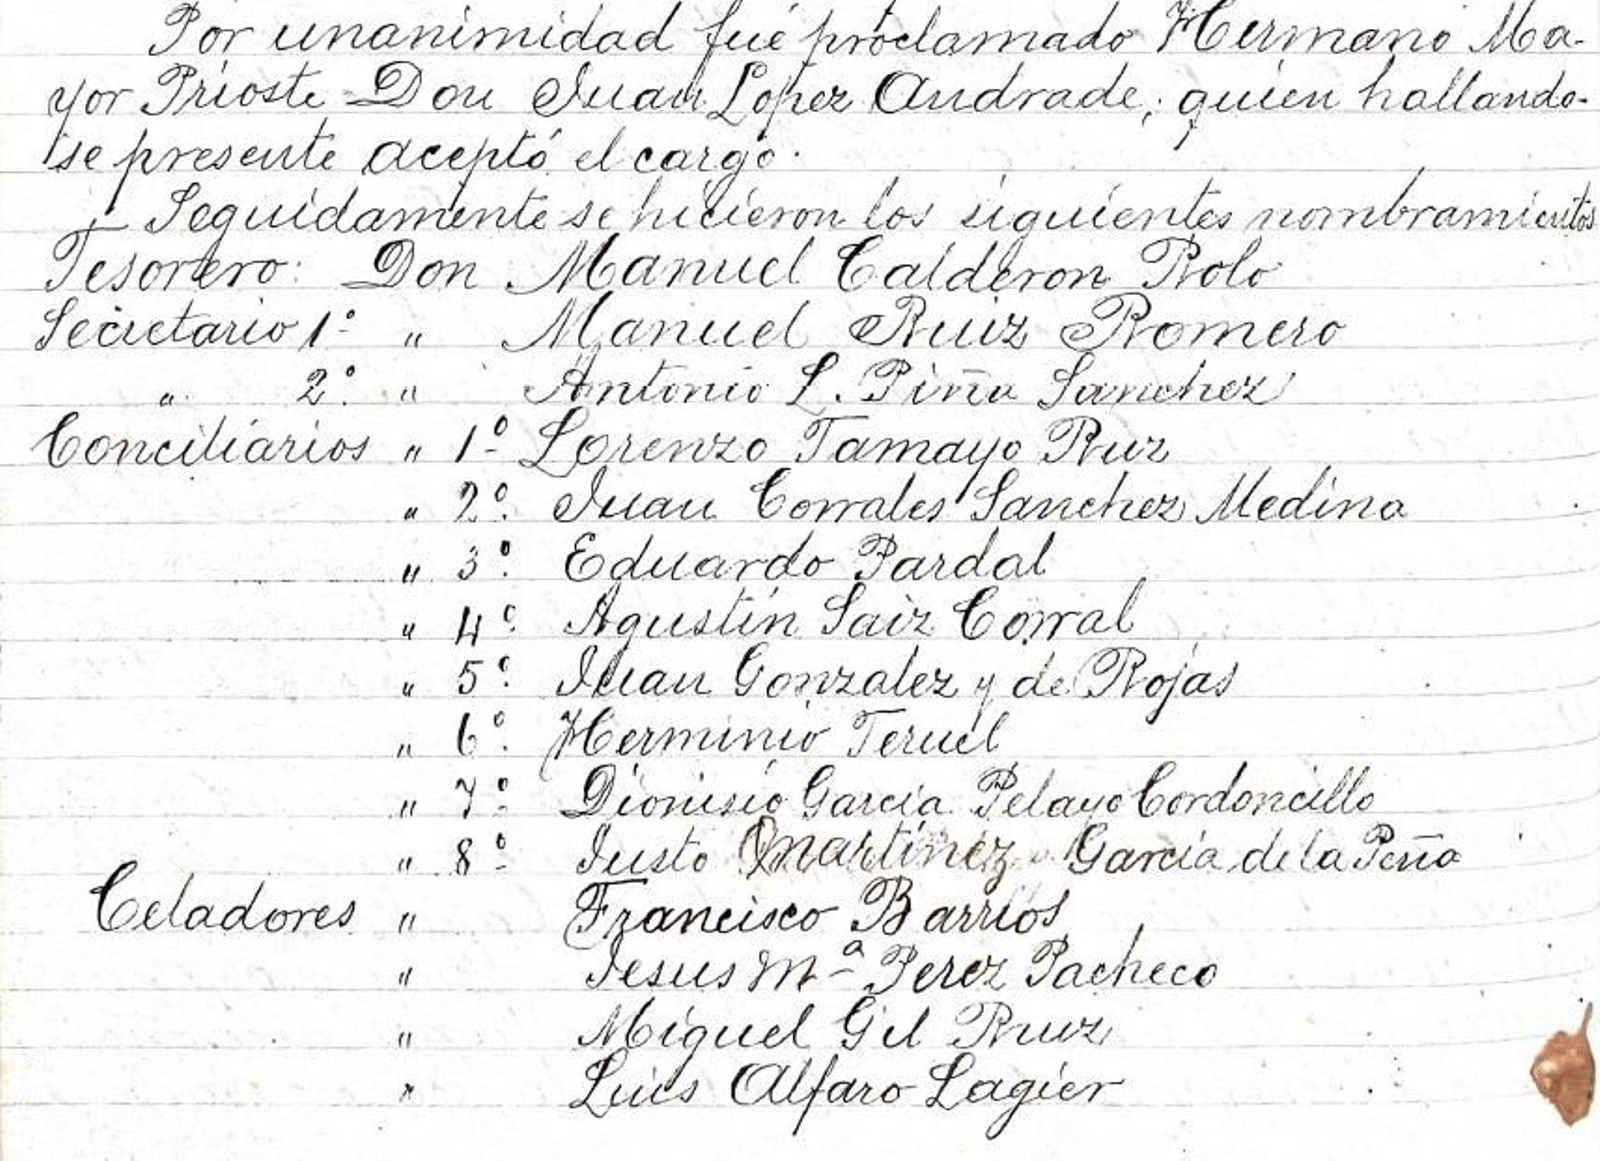 Por unanimidad fué proclamado Hermano Ma-
yor Prioste Don Juan Lopez Andrade; quien hallando-
se presente aceptó el cargo.
Seguidamente se hicieron los siguientes nombramientos
Tesorero: Don Manuel Calderon Polo
Secretario 1º " Manuel Ruiz Romero
" 2º " Antonio L. Piña Sanchez
Conciliarios " 1º Lorenzo Tamayo Ruz
" 2º Juan Corrales Sanchez Medina
" 3º Eduardo Pardal
" 4º Agustín Saiz Corral
" 5º Juan Gonzalez y de Rojas
" 6º Herminio Teruel
" 7º Dionisio García Pelayo Cordoncillo
" 8º Justo Martínez García de la Peña
Celadores " Francisco Barrios
" Jesus Mª Perez Pacheco
" Miguel Gil Ruz
" Luis Alfaro Lagier